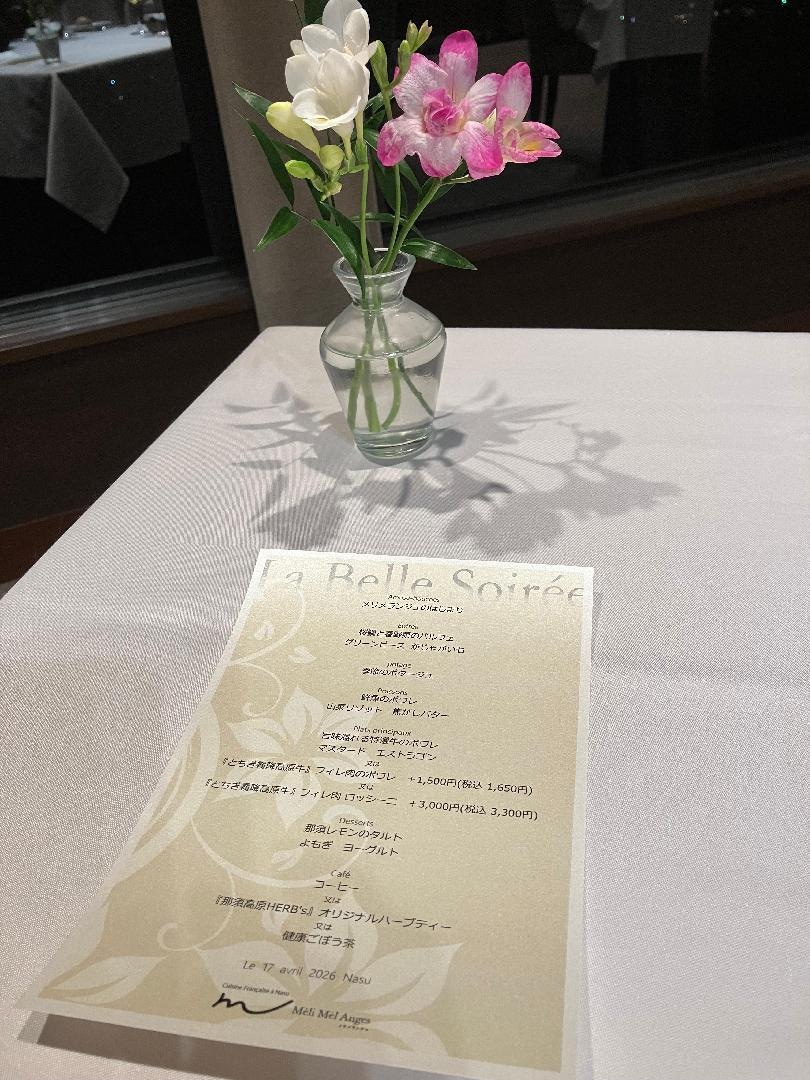 La Belle Soirée
Amuse-bouches
メリメランジュのはじまり
Entrée
桜鯛と春野菜のパルフェ
グリーンピース じゃがいも
potage
季節のポタージュ
Poissons
鮮魚のポワレ
山菜リゾット 焦がしバター
Plats principaux
旨味溢れる特選牛のポワレ
マスタード エストラゴン
又は
『とちぎ霧降高原牛』フィレ肉のポワレ +1,500円(税込 1,650円)
又は
『とちぎ霧降高原牛』フィレ肉 ロッシーニ +3,000円(税込 3,300円)
Desserts
那須レモンのタルト
よもぎ ヨーグルト
Café
コーヒー
又は
『那須高原HERB's』オリジナルハーブティー
又は
健康ごぼう茶
Le 17 avril 2026 Nasu
Cuisine Française à Nasu
Mèli Mèl Anges
メリメランジュ